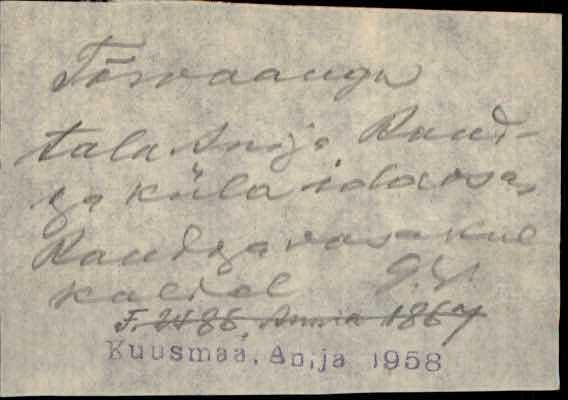 Tõrvaaugu
talu Anija Raud-
ja küla idaosas,
Raudoja vasakul
kaldal G.V.
F. 2486, Annia 1867
Kuusmaa, Anija 1958